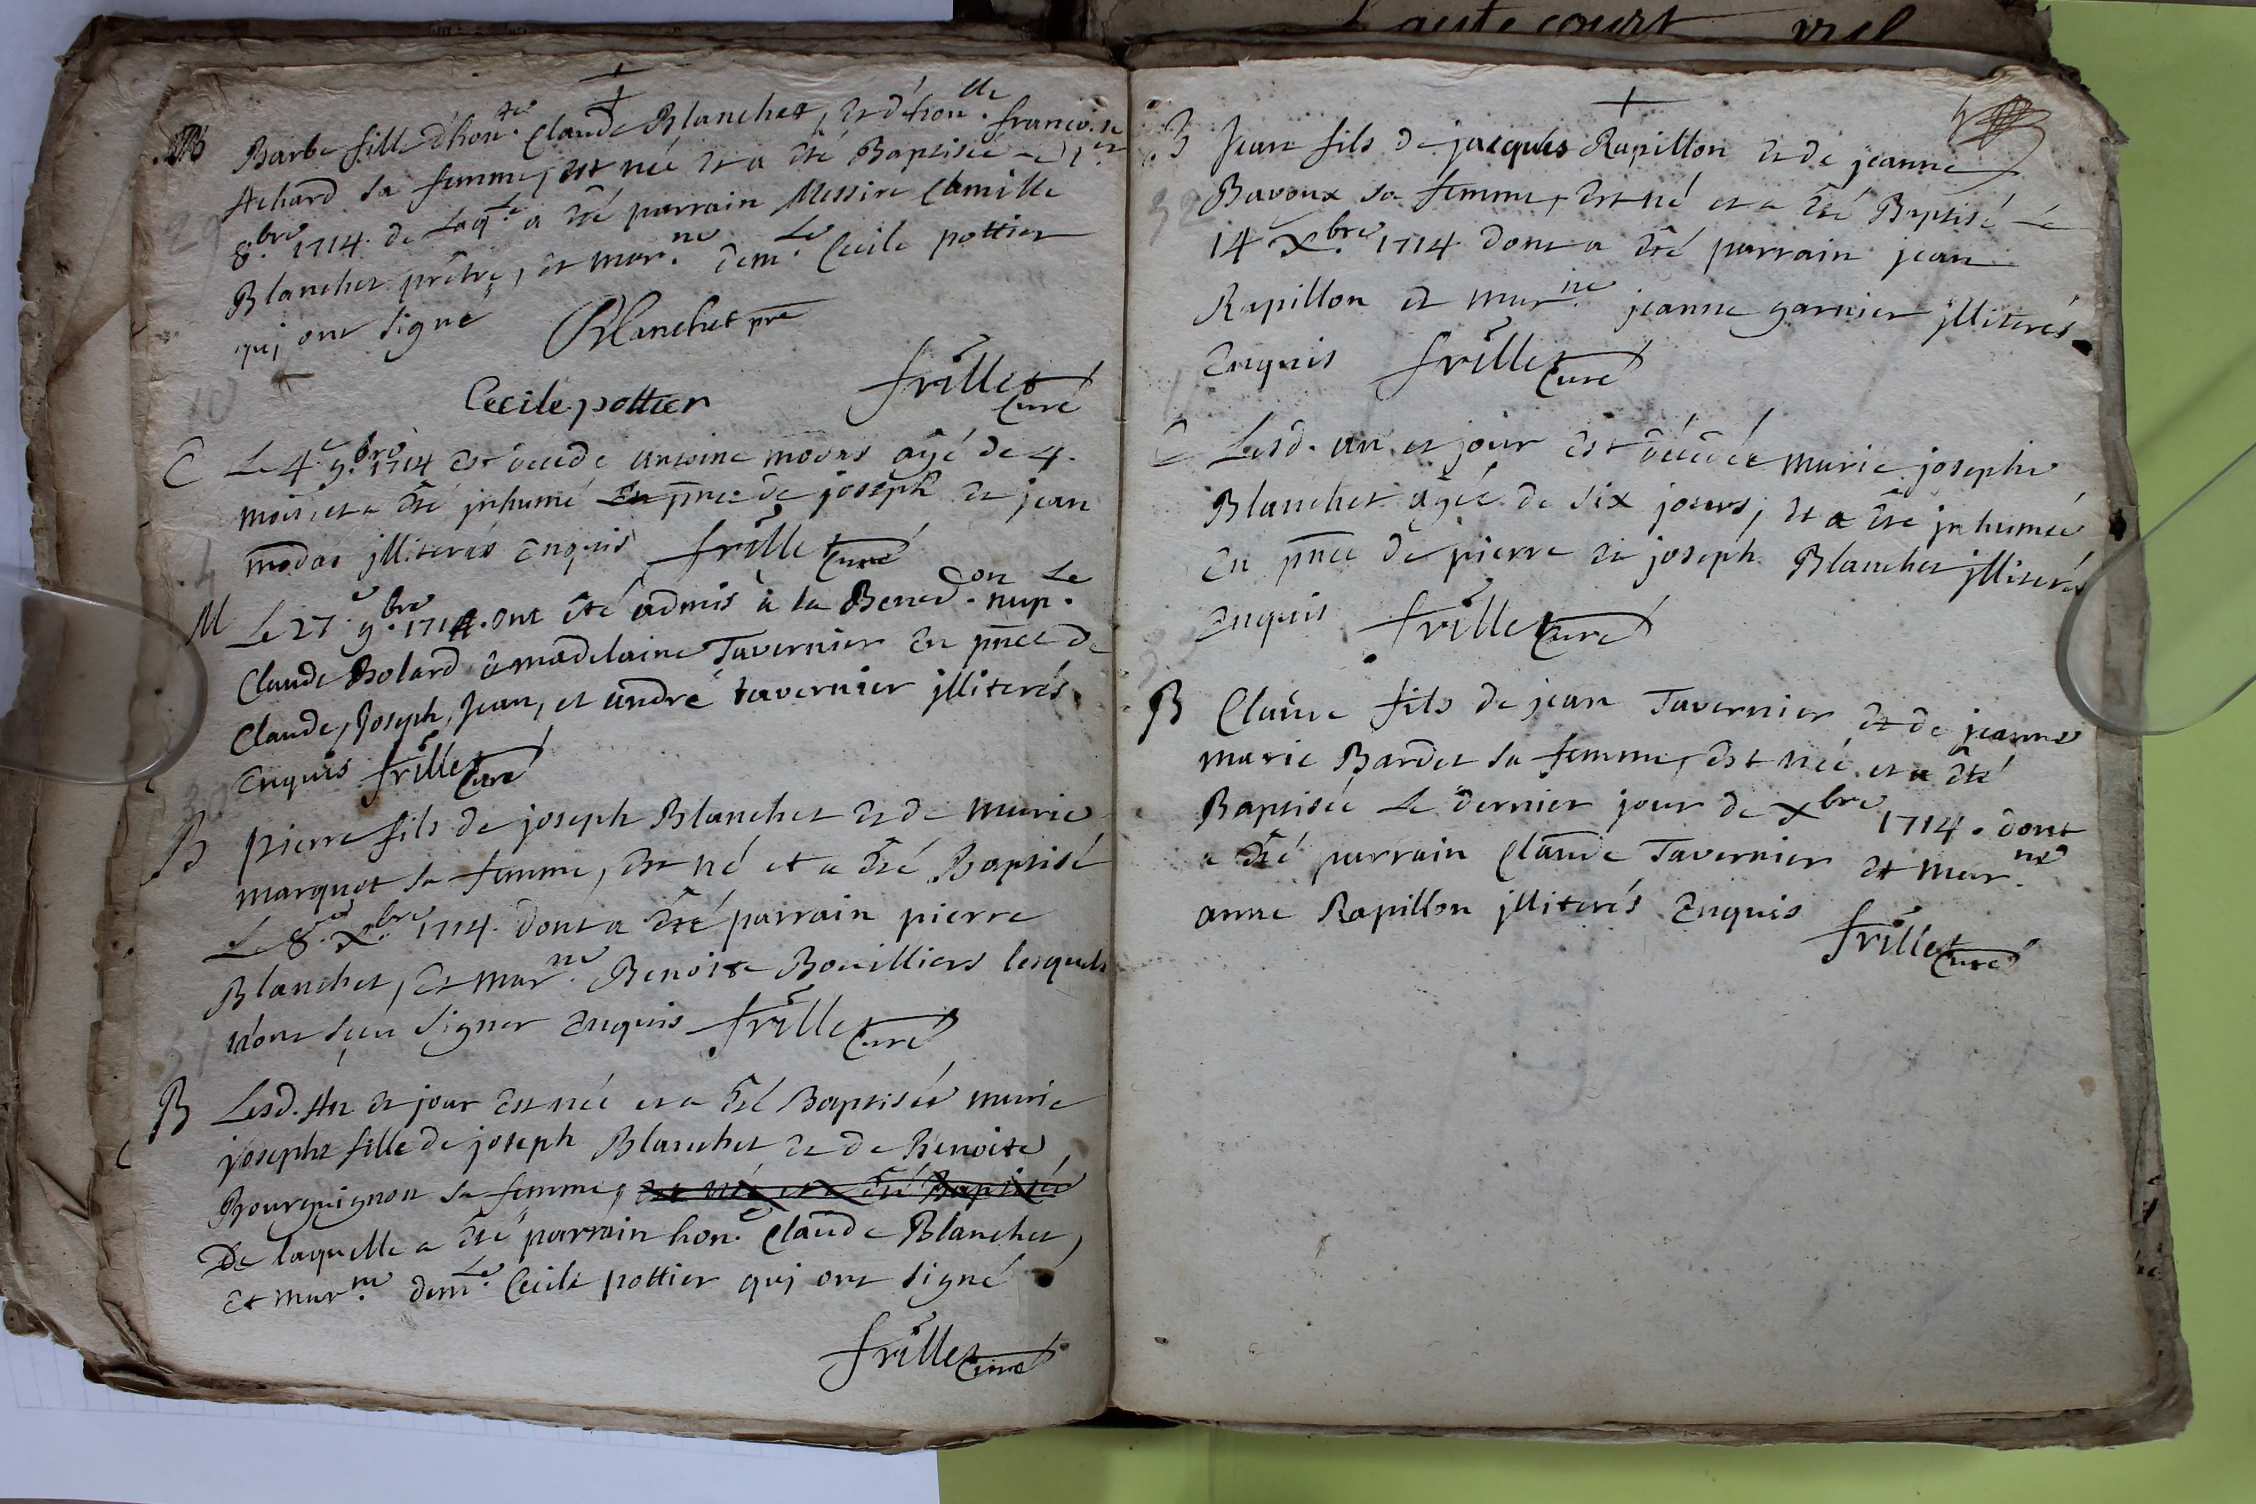 haute court viel
+
B Barbe fille d'hon.te Claude Blanchet, et d'hon.lle francoise
Achard sa femme, est née et a été Baptisée le 1er
8.bre 1714. de laq.le a été parrain Messire Camille
Blanchet prêtre, et mar.ne dem.le Cecile pottier
quj ont signé Blanchet pre
Cecile pottier frillet Curé
C Le 4.e 9.bre 1714 est décédé antoine modas âgé de 4.
mois, et a été jnhumé en pnce de joseph et jean
modas jlliterés enquis frillet Curé
M Le 27.e 9.bre 1714. ont été admis à la Bened.on nup.le
Claude Bolard & madelaine Tavernier en pnce de
Claude, Joseph, Jean, et andré tavernier jlliterés
enquis frillet Curé
B pierre fils de joseph Blanchet et de marie
marquet sa femme, est né et a été Baptisé
Le 8.e X.bre 1714. dont a été parrain pierre
Blanchet, et mar.ne Benoite Bouilliers lesquels
n'ont sçeu signer enquis frillet Curé
B Lesd. An et jour est née et a été Baptisée marie
josephe fille de joseph Blanchet et de Benoite
Bourguignon sa femme, est née et a été Baptisée
De laquelle a été parrain hon.e Claude Blanchet,
et mar.ne dem.le Cecile pottier quj ont signé
frillet Curé
+
B Jean fils de jacques Rapillon et de jeanne
Bavoux sa femme, est né et a été Baptisé Le
14 X.bre 1714 dont a été parrain jean
Rapillon et mar.ne jeanne garnier jlliterés
enquis frillet Curé
C Lesd. an et jour est décédée marie josephe
Blanchet agée de six jours, et a été jnhumée
en pnce de pierre et joseph Blanchet jlliterés
enquis frillet Curé
B Claude fils de jean Tavernier et de jeanne
marie Bardet sa femme, est née et a été
Baptisée Le dernier jour de Xbre 1714. dont
a été parrain Claude Tavernier et mar.ne
anne Rapillon jlliterés enquis
frillet Curé